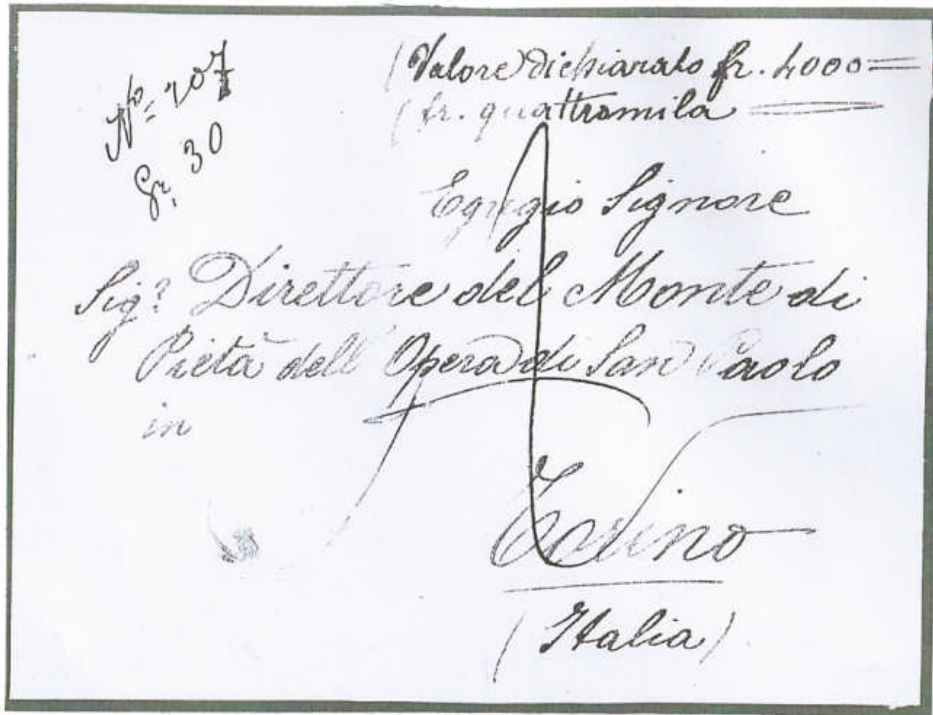 Nº = 207
Gr. 30
(Valore dichiarato fr. 4000 =
(fr. quattromila =
Egregio Signore
Sigr Direttore del Monte di
Pietà dell' Opera di San Paolo
in
Torino
(Italia)